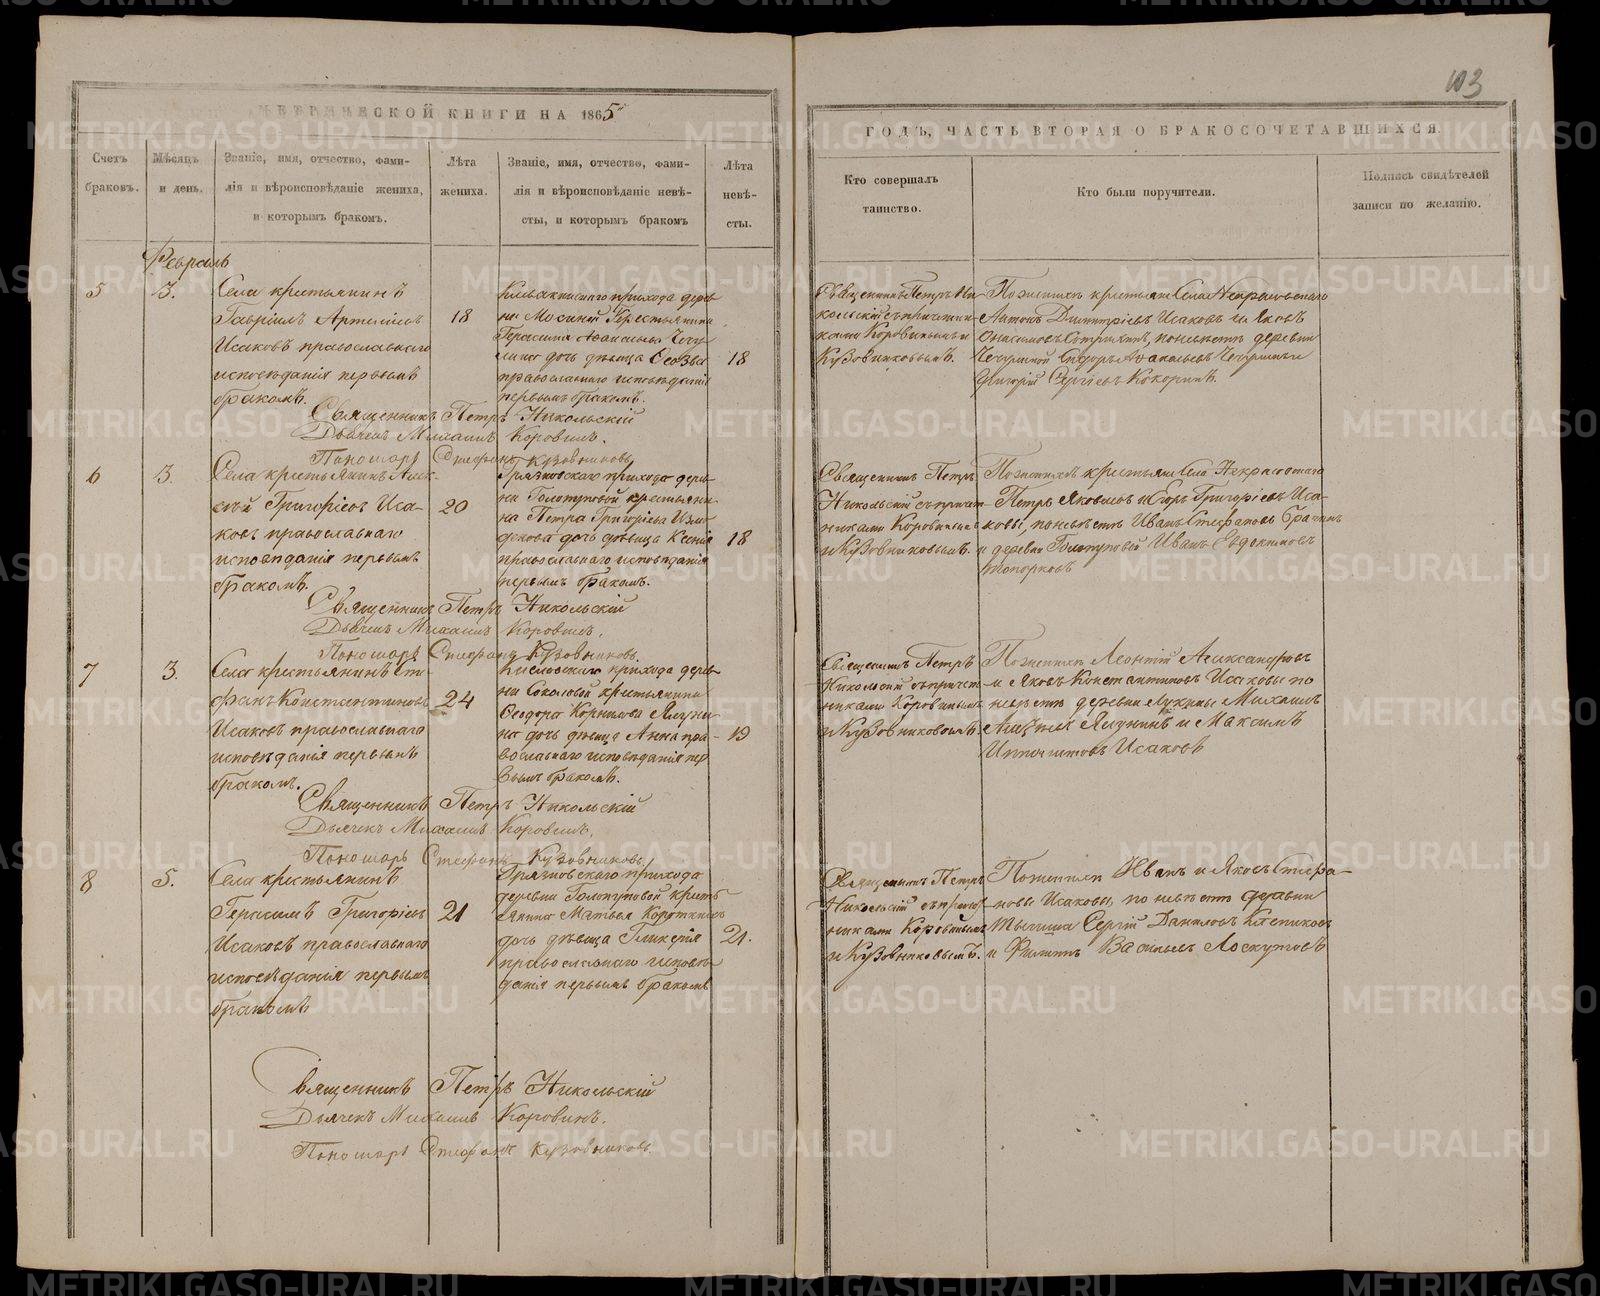 МЕТРИЧЕСКОЙ КНИГИ НА 1865
Счетъ браковъ.
Мѣсяцъ и день.
Званіе, имя, отчество, фами-
лія и вѣроисповѣданіе жениха,
и которымъ бракомъ.
Лѣта
жениха.
Званіе, имя, отчество, фами-
лія и вѣроисповѣданіе невѣ-
сты, и которымъ бракомъ
Лѣта
невѣ-
сты.
Февраль
5
3.
Села крестьянинъ
Гавріилъ Артеміевъ
Исаковъ православнаго
исповѣданія первымъ
бракомъ.
18
прихода дерев
ни Мосиной Крестьянина
Герасима
дочь дѣвица
православнаго исповѣданія
первымъ бракомъ.
18
Священникъ Петръ Никольскій
Дьячекъ Михаилъ Коровинъ.
Пономарь Стефанъ Кузовниковъ
6
3.
Села крестьянинъ Алек-
сѣй Григоріевъ Иса-
ковъ православнаго
исповѣданія первымъ
бракомъ.
20
Грязновскаго прихода дерев-
ни крестьяни-
на Петра Григорьева
дочь дѣвица Ксенія
православнаго исповѣданія
первымъ бракомъ.
18
Священникъ Петръ Никольскій
Дьячекъ Михаилъ Коровинъ.
Пономарь Стефанъ Кузовниковъ.
7
3.
Села крестьянинъ Сте-
фанъ Константиновъ
Исаковъ православнаго
исповѣданія первымъ
бракомъ.
24
Кисловскаго прихода дерев-
ни Соколовой крестьянина
Ѳеодора Корнилова
дочь дѣвица Анна пра-
вославнаго исповѣданія пер
вымъ бракомъ.
19
Священникъ Петръ Никольскій
Дьячекъ Михаилъ Коровинъ.
Пономарь Стефанъ Кузовниковъ.
8
5.
Села крестьянинъ
Герасимъ Григоріевъ
Исаковъ православнаго
исповѣданія первымъ
бракомъ
21
Грязновскаго прихода
деревни кресть-
янина Матвея
дочь дѣвица Гликерія
православнаго исповѣ-
данія первымъ бракомъ
21.
Священникъ Петръ Никольскій
Дьячекъ Михаилъ Коровинъ.
Пономарь Стефанъ Кузовниковъ.
103
ГОДЪ, ЧАСТЬ ВТОРАЯ О БРАКОСОЧЕТАВШИХСЯ.
Кто совершалъ
таинство.
Кто были поручители.
Подпись свидѣтелей
записи по желанію.
Священникъ Петръ Ни-
кольскій съ причетни-
ками Коровинымъ и
Кузовниковымъ.
По женихѣ крестьяне Села Некрасовскаго
Антонъ Димитріевъ Исаковъ и Яковъ
по невѣстѣ деревни
Сидоръ
Григорій Сергіевъ Кокоринъ.
Священникъ Петръ
Никольскій съ причет
никами Коровинымъ
и Кузовниковымъ.
По женихѣ крестьяне Села Некрасовскаго
Петръ Яковлевъ и Егоръ Григоріевъ Иса-
ковы, по невѣстѣ Иванъ Стефановъ
и деревни Иванъ Евдокимовъ
Топорковъ
Священникъ Петръ
Никольскій съ причет
никами Коровинымъ
и Кузовниковымъ.
По женихѣ Леонтій Александровъ
и Яковъ Константиновъ Исаковы по
невѣстѣ деревни Михаилъ
и Максимъ
Исаковъ
Священникъ Петръ
Никольскій съ причет
никами Коровинымъ
и Кузовниковымъ.
По женихѣ Иванъ и Яковъ Стефа-
новы Исаковы, по невѣстѣ деревни
Сергій Даниловъ
и Филиппъ Васильевъ Лоскутовъ
METRIKI.GASO-URAL.RU